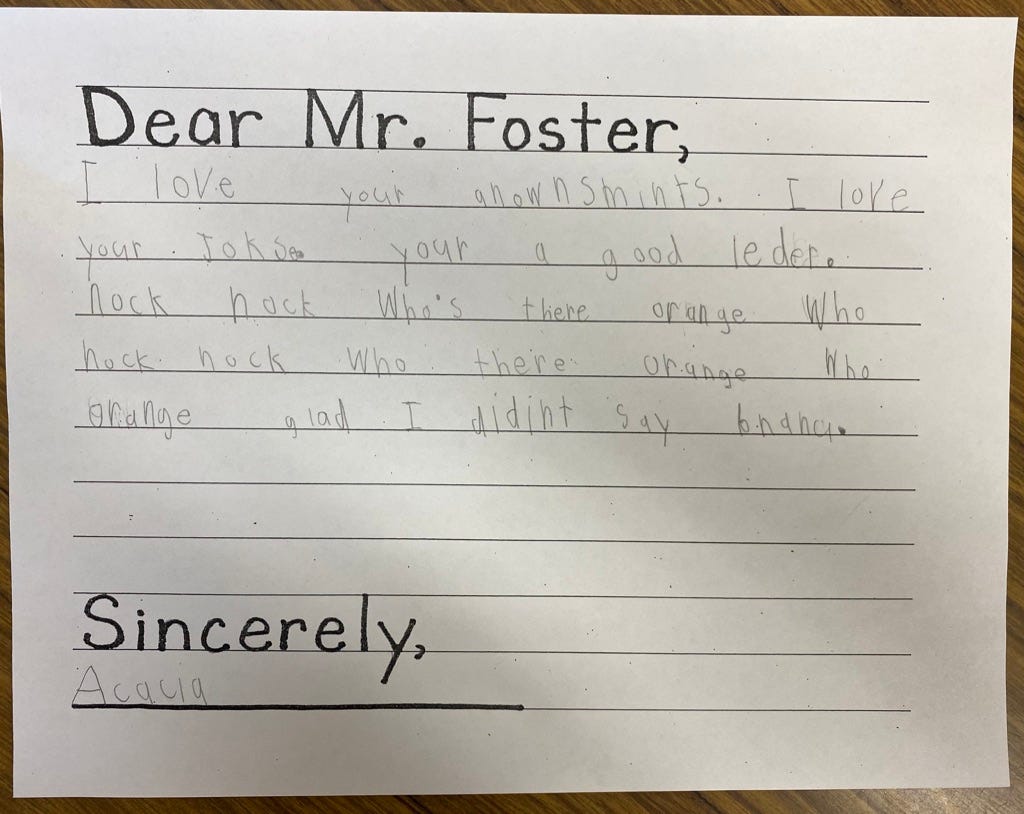 Dear Mr. Foster,
I love your anownsmints. I love
your Jokse. your a good leder.
nock nock Who's there orange Who
nock nock Who there orange Who
orange glad I didint say bnana.
Sincerely,
Acacia